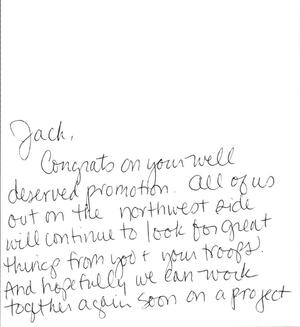 Jack,
Congrats on your well
deserved promotion. All of us
out on the northwest side
will continue to look for great
things from you + your troops.
And hopefully we can work
together again soon on a project